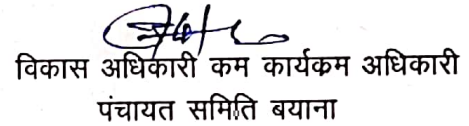 विकास अधिकारी कम कार्यकम अधिकारी
पंचायत समिति बयाना